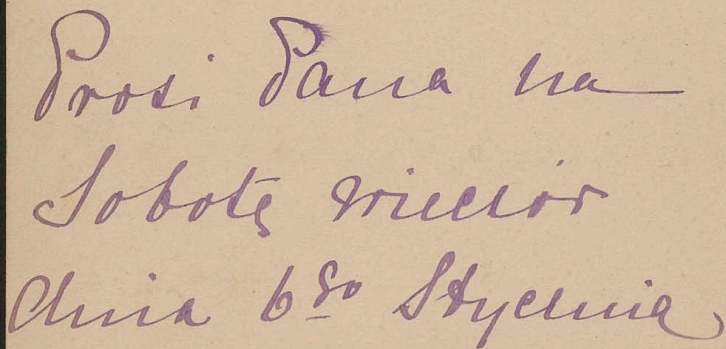 Prosi Pana na
Sobotę wieczór
dnia 6go Stycznia